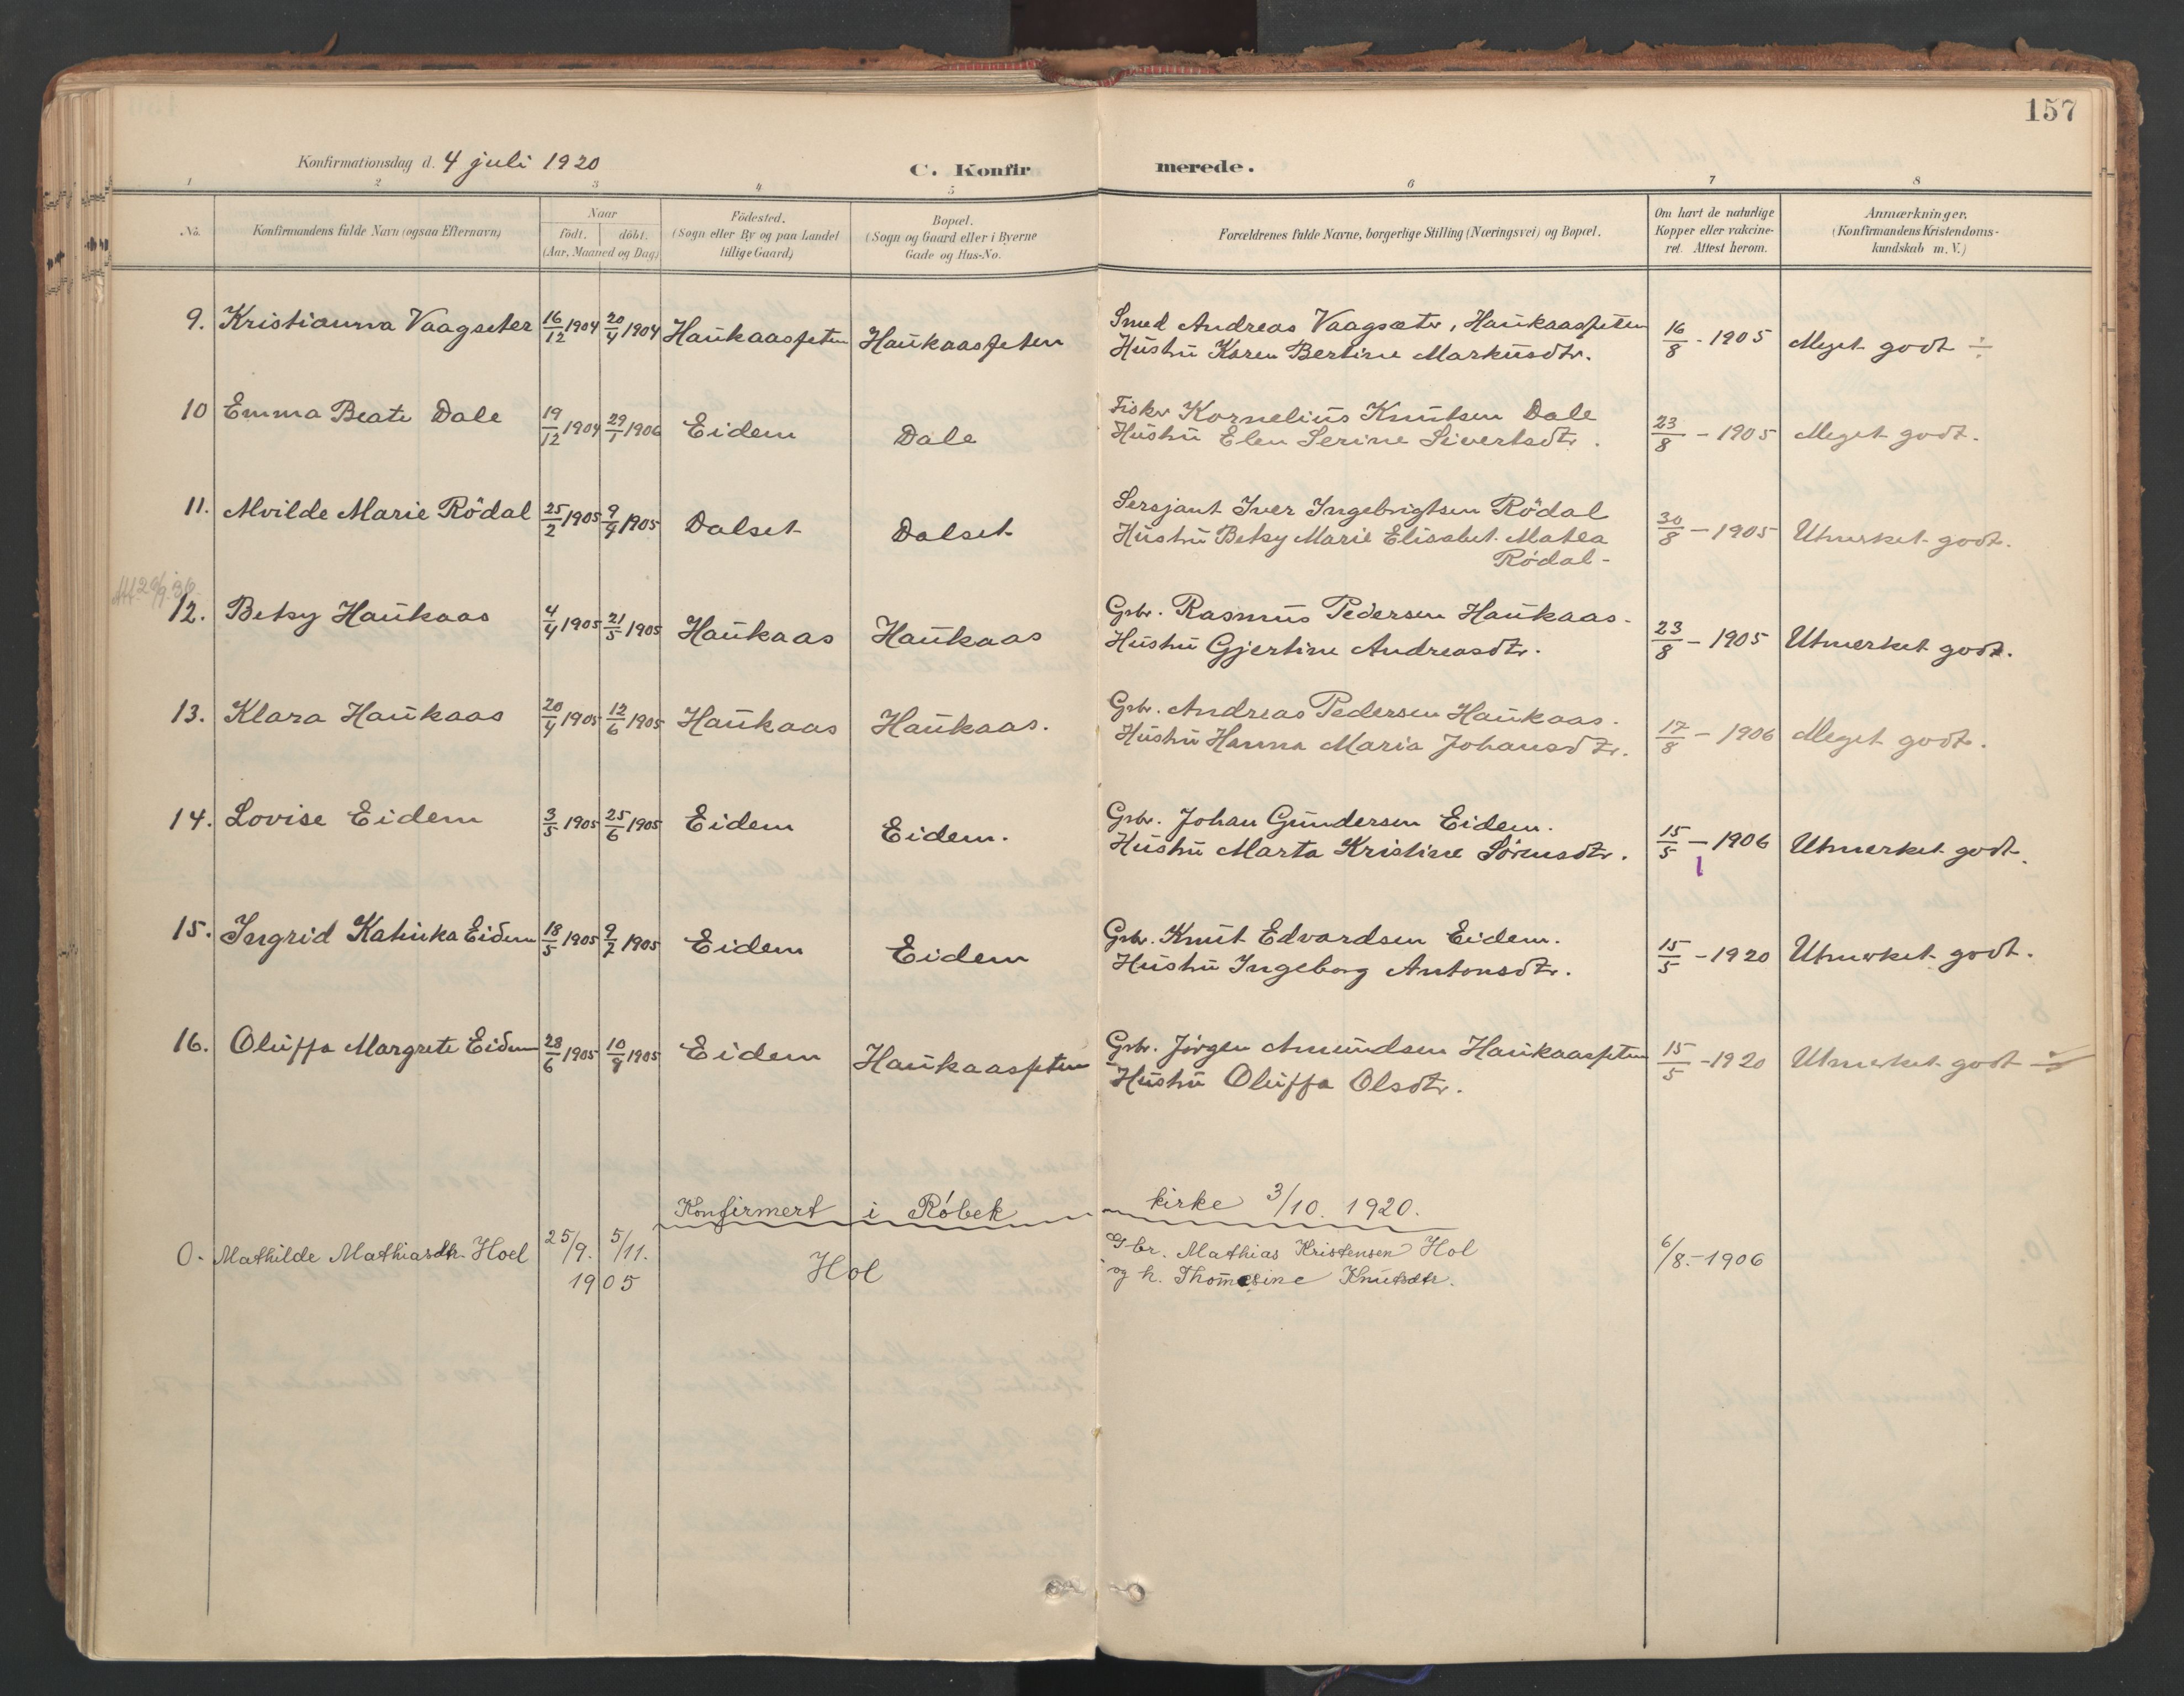 157
Konfirmationsdag d. 4 juli 1920
C. Konfirmerede.
1 2 3 4 5 6 7 8
No.
Konfirmandens fulde Navn (ogsaa Efternavn)
Naar
födt. döbt.
(Aar, Maaned og Dag)
Födested.
(Sogn eller By og paa Landet
tillige Gaard)
Bopæl.
(Sogn og Gaard eller i Byerne
Gade og Hus-No.
Forældrenes fulde Navne, borgerlige Stilling (Næringsvei) og Bopæl.
Om havt de naturlige
Kopper eller vakcine-
ret. Attest herom.
Anmærkninger.
(Konfirmandens Kristendoms-
kundskab m. V.)
9. Kristianna Vaagseter 16/12 1904 20/4 1904 Haukaasfeten Haukaasfeten Smed Andreas Vaagsæter, Haukaasfeten 16/8 - 1905 Meget godt ÷
Hustru Karen Bertine Markusdtr.
10 Emma Beate Dale 19/12 1904 29/1 1906 Eidem Dale Fisker Kornelius Knutsen Dale 23/8 - 1905 Meget godt.
Hustru Elen Serine Sivertsdtr.
11. Alvilde Marie Rödal 25/2 1905 9/9 1905 Dalset Dalset Sersjant Iver Ingebrigtsen Rödal 30/8 - 1905 Utmerket godt.
Hustru Betsy Marie Elisabet Matea
Rödal -
12. Betsy Haukaas 4/4 1905 21/5 1905 Haukaas Haukaas Gbr. Rasmus Pedersen Haukaas. 23/8 - 1905 Utmerket godt.
Hustru Gjertine Andreasdtr.
13. Klara Haukaas 20/4 1905 12/6 1905 Haukaas Haukaas. Gbr. Andreas Pedersen Haukaas. 17/8 - 1906 Meget godt.
Hustru Hanna Maria Johansdtr.
14. Lovise Eidem 3/5 1905 25/6 1905 Eidem Eidem. Gbr. Johan Gundersen Eidem. 15/5 - 1906 Utmerket godt.
Hustru Marta Kristine Sörensdtr.
15. Ingrid Katinka Eidem 18/5 1905 9/7 1905 Eidem Eidem Gbr. Knut Edvardsen Eidem. 15/5 - 1920 Utmerket godt.
Hustru Ingeborg Antonsdtr.
16. Oluffa Margrete Eidem 28/6 1905 10/9 1905 Eidem Haukaasfeten Gbr. Jörgen Amundsen Haukaasfeten 15/5 - 1920 Utmerket godt ÷
Hustru Oluffa Olsdtr.
Konfirmert i Röbek kirke 3/10. 1920.
0. Mathilde Mathiasdtr. Hoel 25/9. 5/11. 1905 Hol Gbr. Mathias Kristensen Hol 6/8. - 1906
og h. Thomesine Knutsdtr.